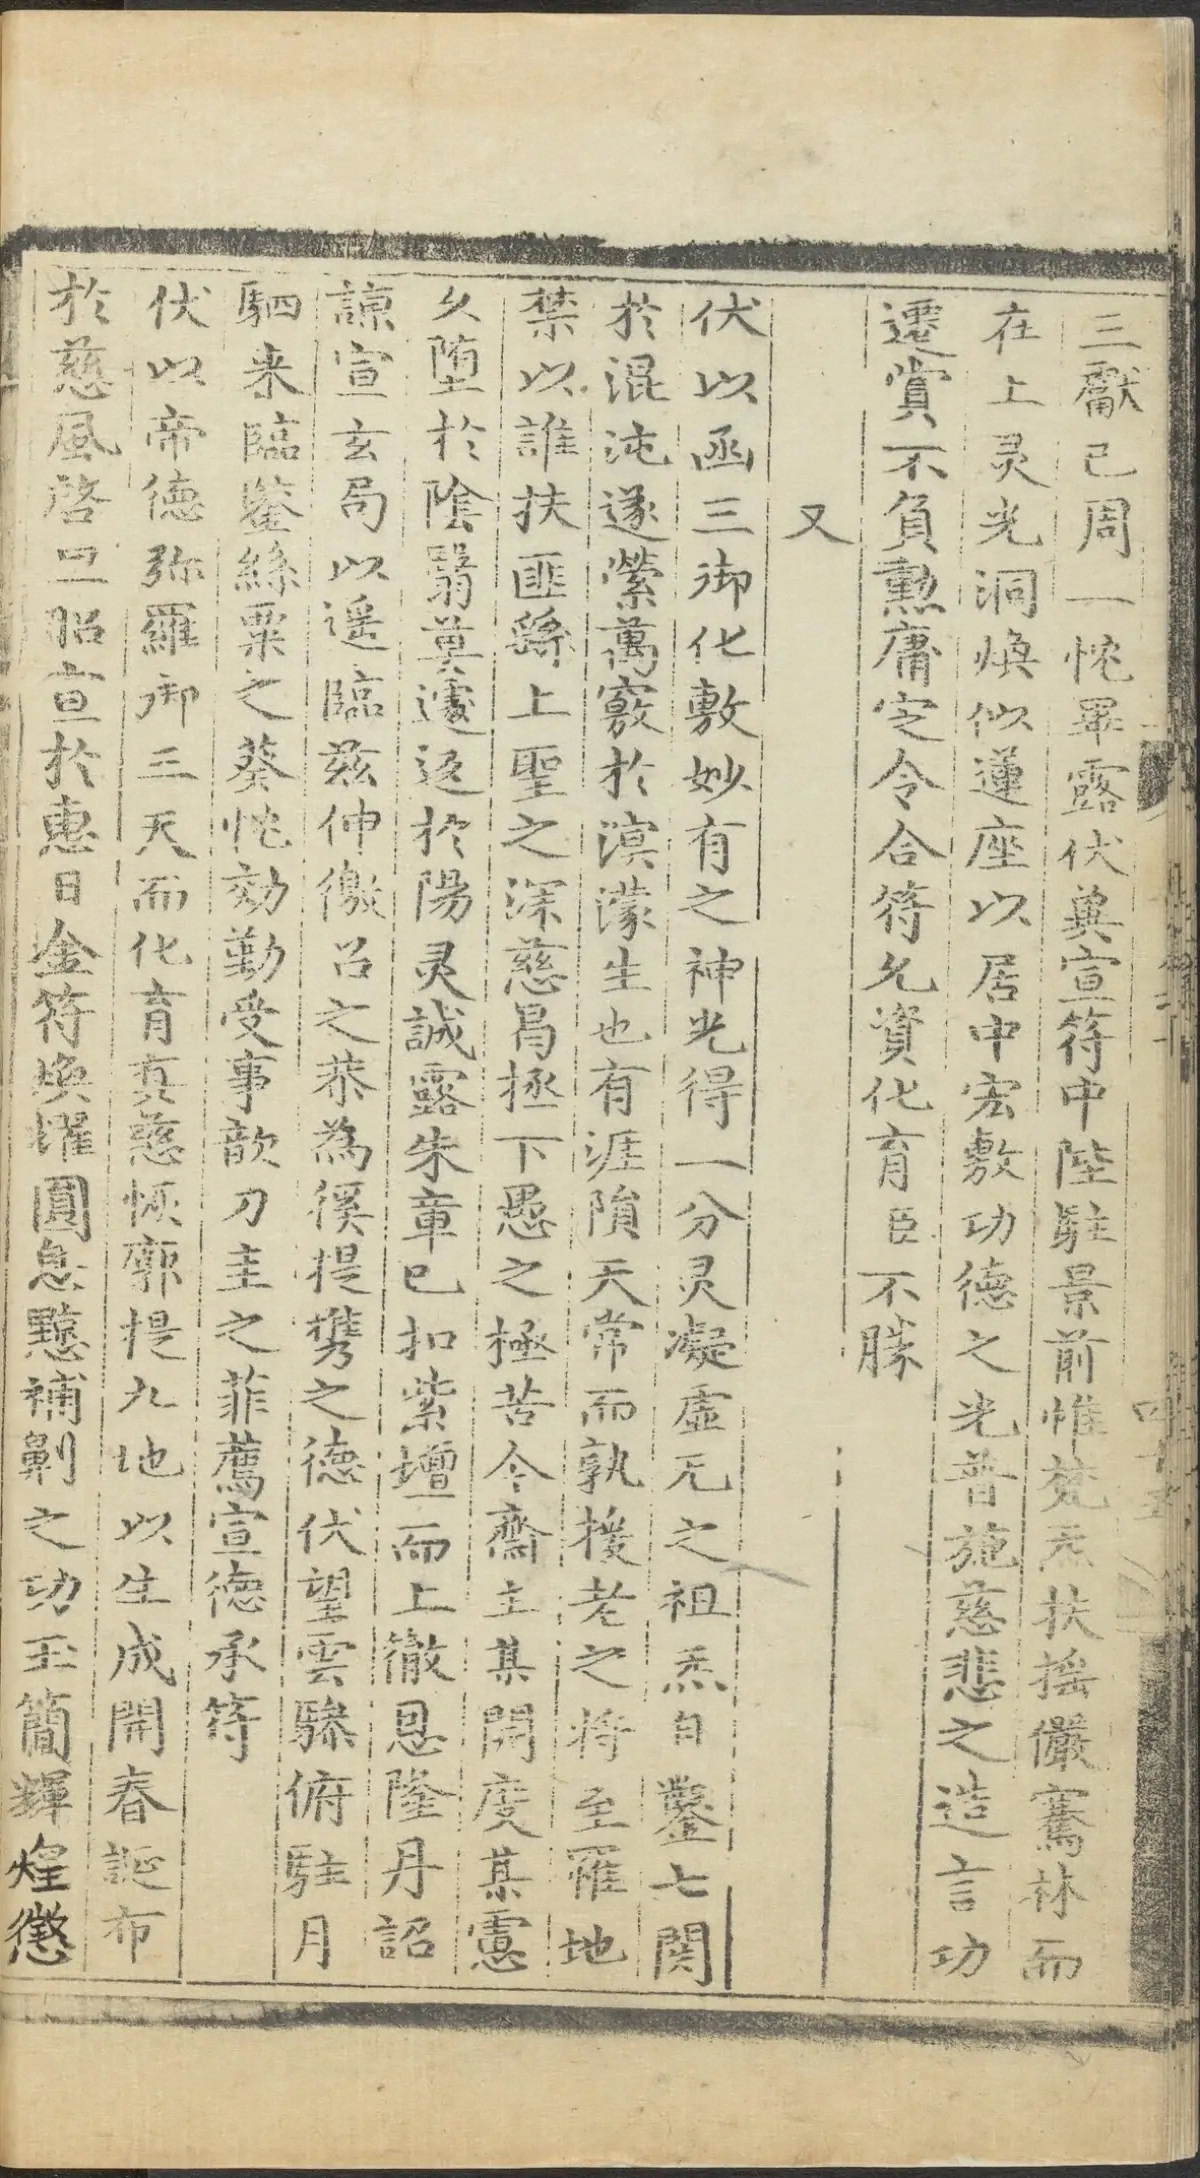 三獻已周一忱畢露伏冀宣符中陛駐景前惟梵炁扶搖儼騫林而
在上灵光洞煥似蓮座以居中宏敷功德之光普施慈悲之造言功
遷賞不負勲庸定令合符允資化育臣不勝
又
伏以函三御化敷妙有之神光得一分灵凝虛无之祖炁自鑿七関
於混沌遂縈萬竅於溟濛生也有涯隕天常而孰援老之将至罹地
禁以誰扶匪繇上聖之深慈曷拯下愚之極苦今齋主某開度某霊
久堕於陰翳莫遽返於陽灵誠露朱章已扣紫壇而上徹恩隆丹詔
諒宣玄局以遥臨兹伸徼召之恭為徯提携之德伏望雲驂俯駐月
駟来臨鑒絲粟之葵忱効勤受事歆刀圭之菲薦宣德承符
伏以帝德弥羅御三天而化育真慈恢廓提九地以生成開春誕布
於慈風啓旦昭宣於惠日金符煥耀圓息黥補劓之功玉簡輝煌懲